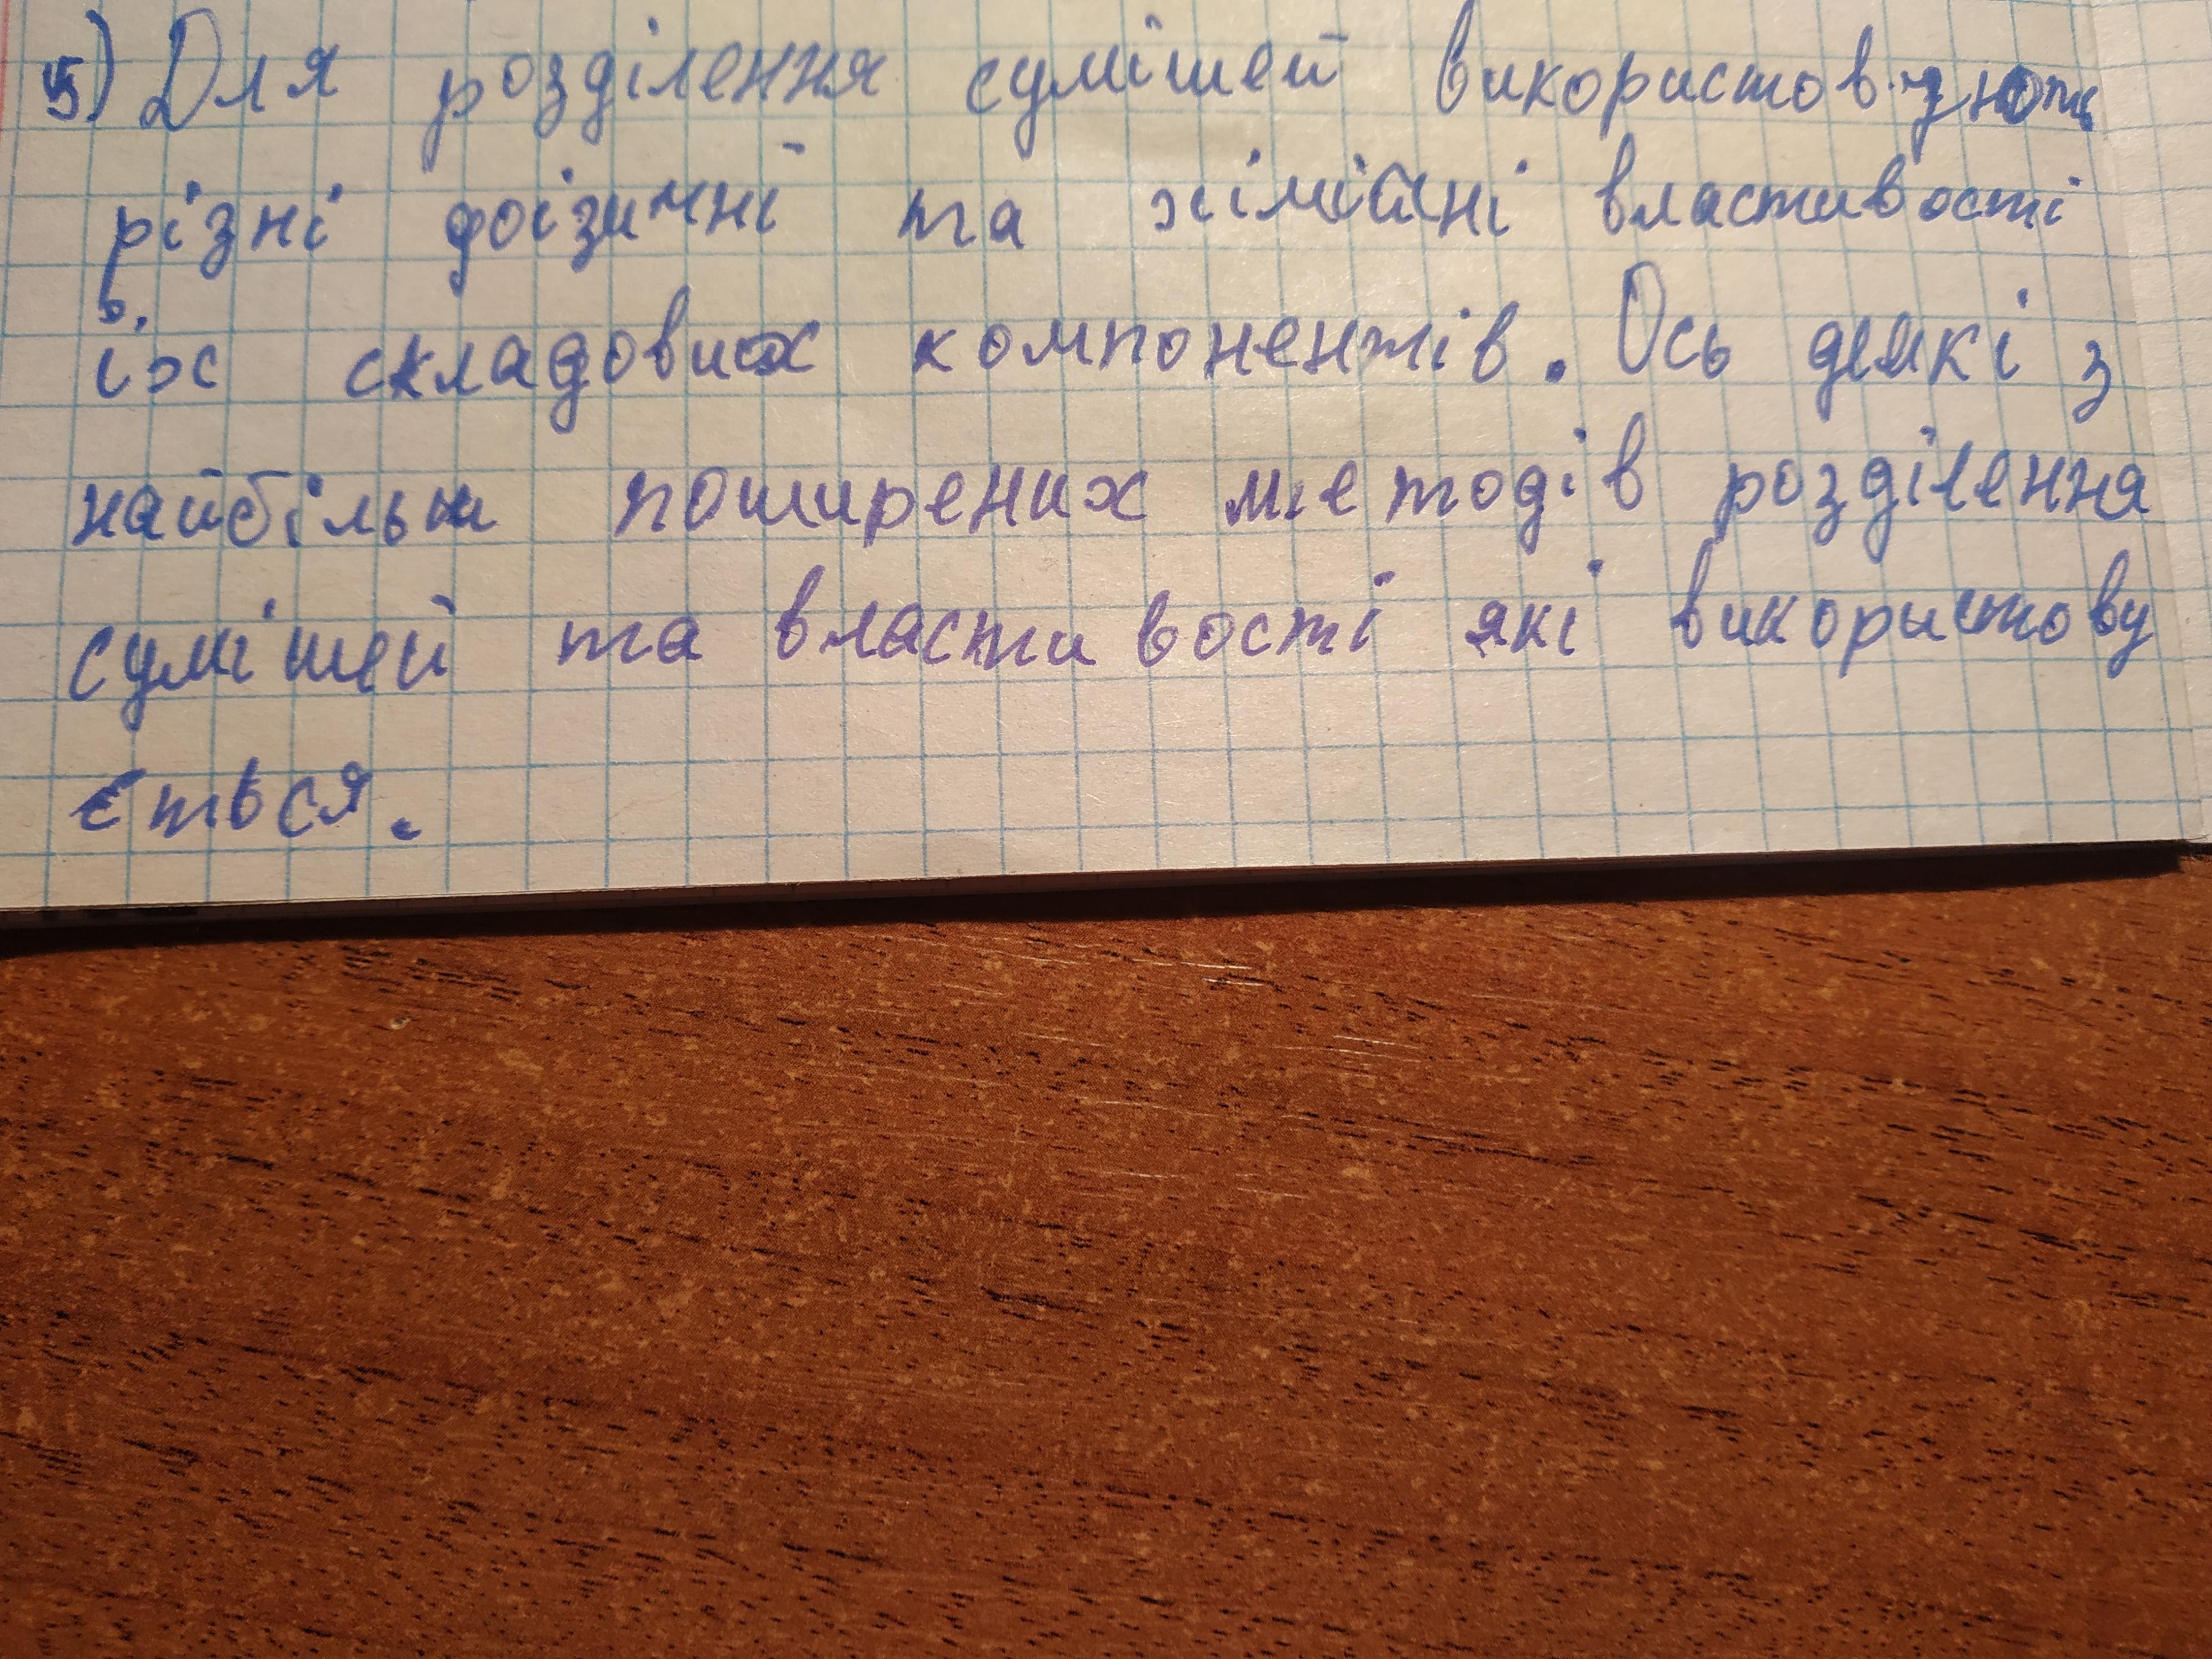 5) Для розділення сумішей використовують
різні фізичні та хімічні властивості
їх складових компонентів. Ось деякі з
найбільш поширених методів розділення
сумішей та властивості які використову
ється.